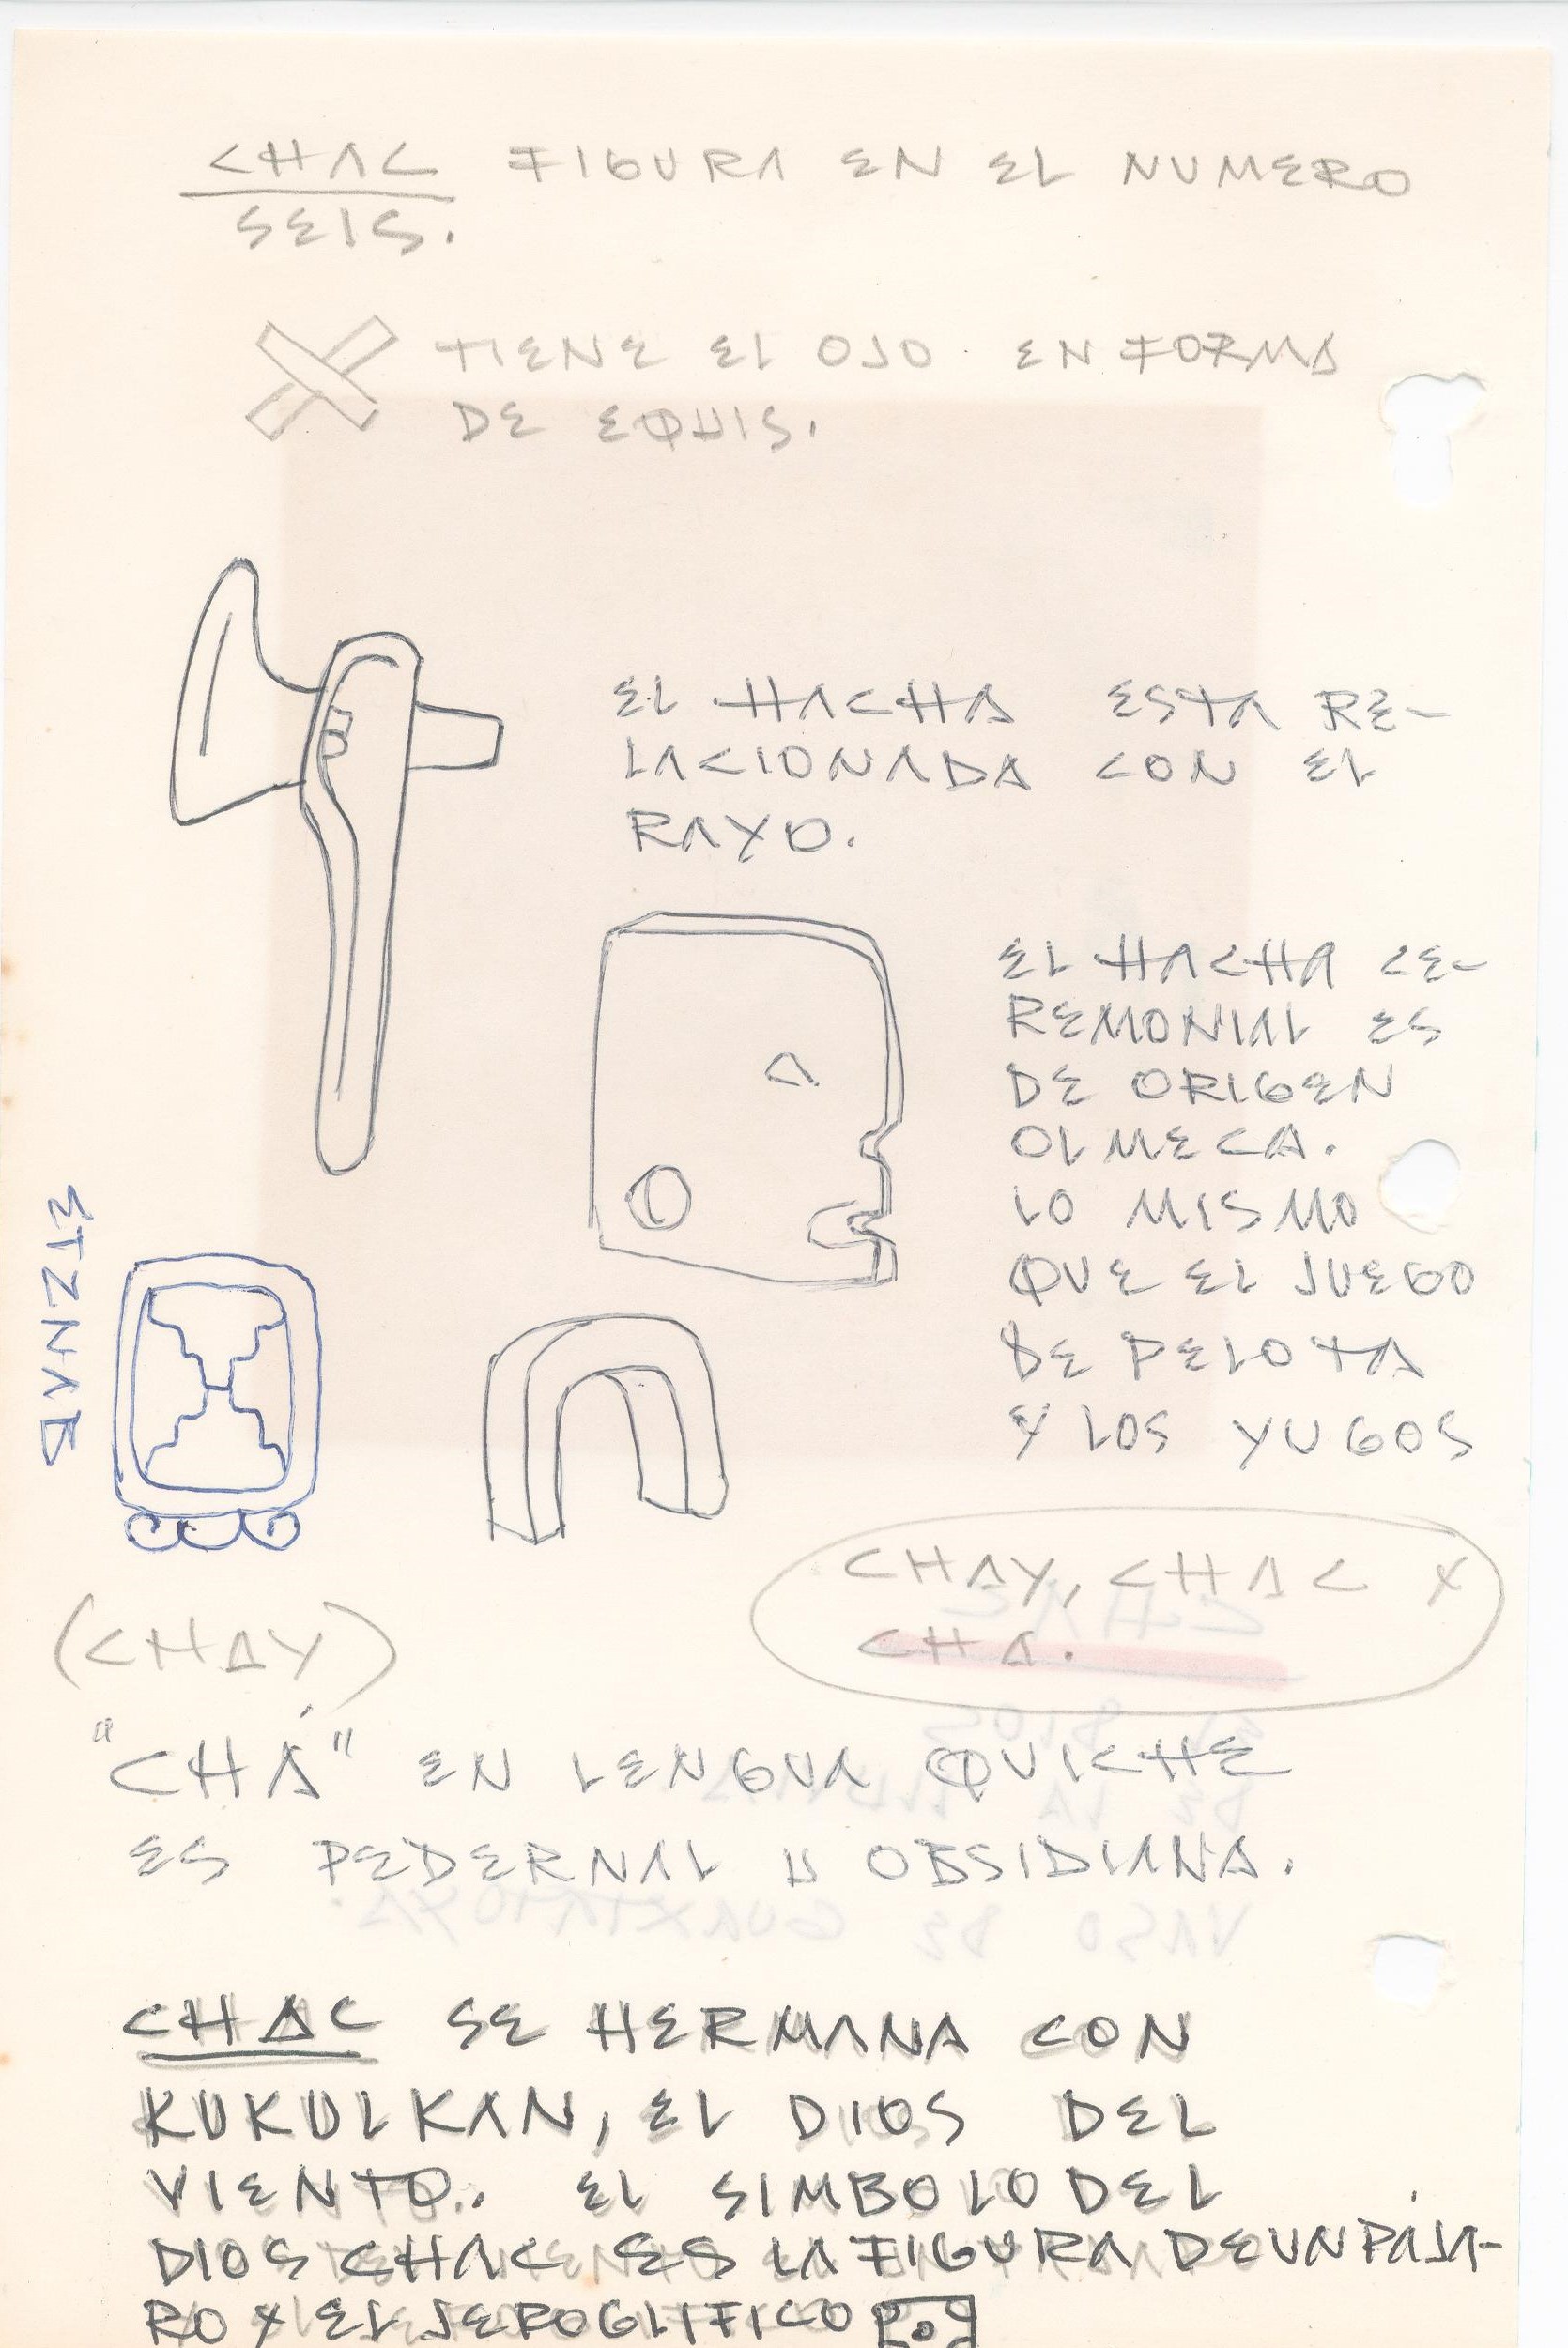 CHAC FIGURA EN EL NUMERO
SEIS.
TIENE EL OJO EN FORMA
DE EQUIS.
EL HACHA ESTA RE-
LACIONADA CON EL
RAYO.
EL HACHA CE-
REMONIAL ES
DE ORIGEN
OLMECA.
LO MISMO
QUE EL JUEGO
DE PELOTA
Y LOS YUGOS
ETZNAB
CHAY, CHAC Y
CHA.
(CHAY)
"CHÁ" EN LENGUA QUICHE
ES PEDERNAL U OBSIDIANA.
CHAC SE HERMANA CON
KUKULKAN, EL DIOS DEL
VIENTO. EL SIMBOLO DEL
DIOS CHAC ES LA FIGURA DE UN PÁJA-
RO Y EL JEROGLIFICO